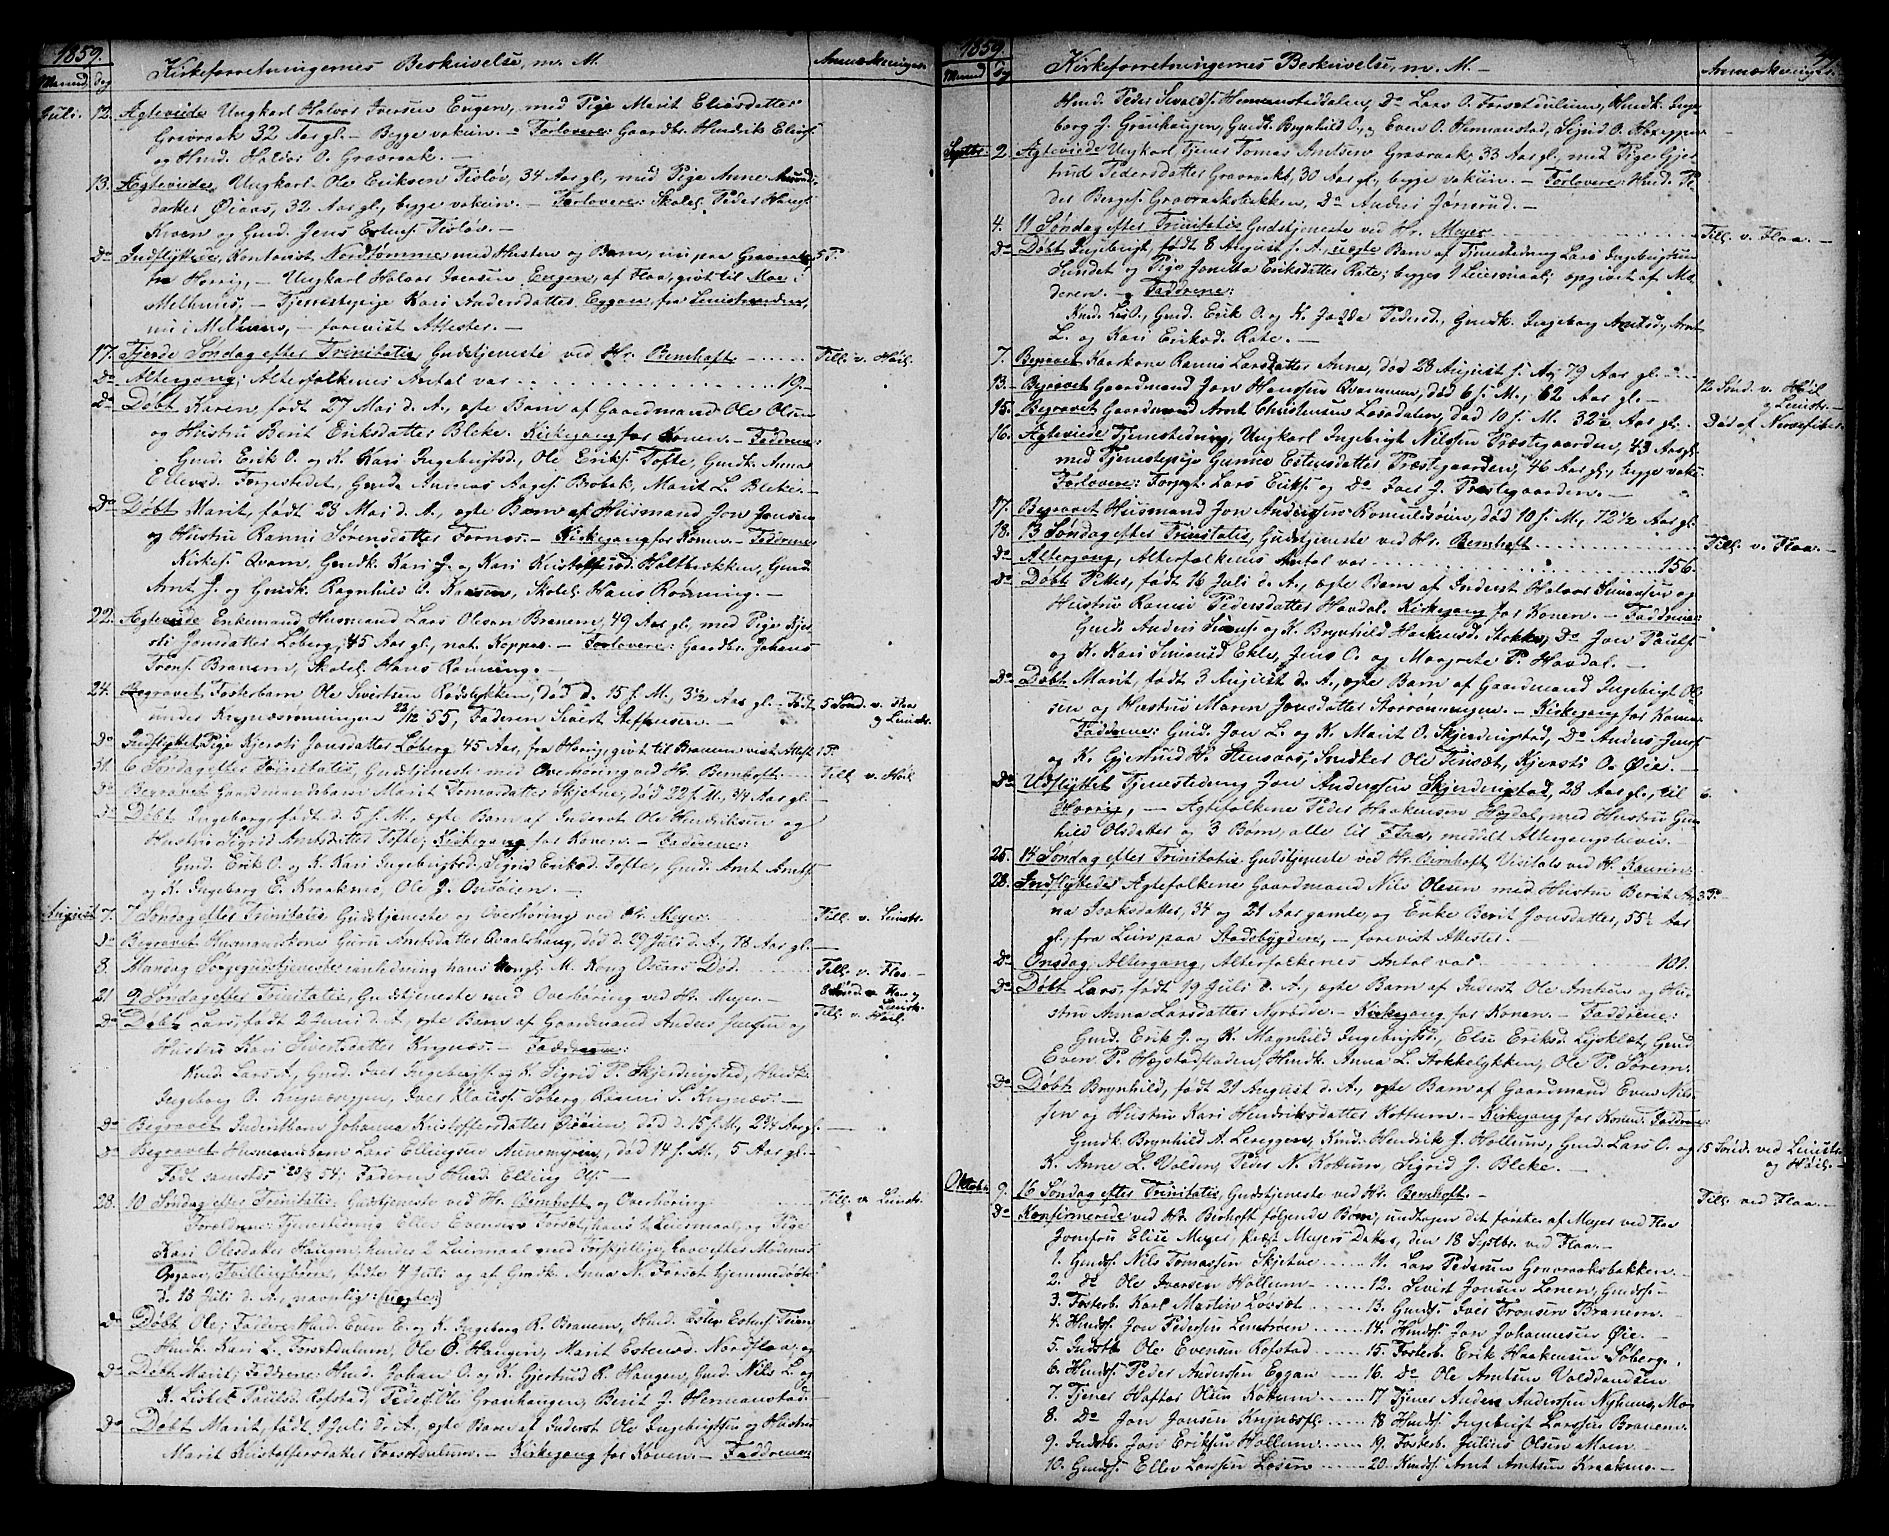 1859.
Maaned. Dag
Kirkeforretningernes Beskrivelse, m. M.
Anmærkninger.
Juli. 12. Ægteviede Ungkarl Halvor Iversen Eugen, med Pige Marit Eliasdatter
Gravraak 32 Aar gl. – Begge vakcin. – Forlovere: Gaardbr. Hendrik Elias.
og Hmd. Haldor O. Gravraak. –
13. Ægteviede, Ungkarl Ole Eriksen Tisløv, 34 Aar gl., med Pige Anne
datter Øiaas, 32 Aar gl., begge vakcin. – Forlovere: Skolel. Peder Haugs.
Kroen og Gmd. Jens Estens. Tisløv. –
Do Indflyttede, Kontorist Nordtømme med Hustru og Barn, nu paa Gravraak, 5 P.
fra Horrig, – Ungkarl Halvor Iversen Eugen, af Flaa, givt til Moe i
Melhuus, – Tjenestepige Kari Andersdatter Eggan, fra Leinstranden,
nu i Melhuus, – forevist Attester. –
17. Fjerde Søndag efter Trinitatis Gudstjeneste ved Hr. Bernhoft. Till. v. Høil.
Do Altergang; Alterfolkenes Antal var 19. –
Do Døbt Karen, født 27 Mai d. A., ægte Barn af Gaardmand Ole Olsen
og Hustru Berit Eriksdatter Bleke. Kirkegang for Konen. – Faddrene:
Gmd. Erik O. og K. Kari Ingebrigtsd., Ole Eriks. Tofte, Gmdk. Anna
Ellevsd. Forgestedet, Gmd. Aageს. Brobak, Marit L. Bleke. –
Do Døbt Marit, født 23 Mai d. A., ægte Barn af Husmand Jon Jonsen
og Hustru Ranni Sørensdatter Fornes. – Kirkegang for Konen. – Faddrene
Kirkes. Qvam, Gmdk. Kari J. og Kari Kristoffersd. Holtbækken, Gmd.
Arnt J. og Gmdk. Ragnhild O. Kaasen, Skolel. Hans Rønning. –
22. Ægteviede Enkemand Husmand Lars Olsen Branem, 49 Aar gl., med Pige Kjer-
sti Jonsdatter Løberg, 45 Aar gl., nat. Kopper. – Forlovere: Gaardbr. Johans
Trons. Branem, Skolel. Hans Rønning. –
24. Begravet Fosterbarn Ole Sivertsen Rødslykken, død d. 15 f. M., 3½ Aar gl. – Født 5 Sønd. v. Flaa
under Krognæsrønningen 22/12 55, Faderen Sivert Steffensen. – og Leinstr.
Do Indflyttet Pige Kjersti Jonsdatter Løberg 45 Aar, fra Horrig, givt til Branem: vist Attest 1 P.
31. 6 Søndag efter Trinitatis, Gudstjeneste med Overhøring ved Hr. Bernhoft. Till. v. Høil
Do Begravet Gaardmandsbarn Marit Tomasdatter Skjetne, død 22 f. M., 3/4 Aar gl. –
Do Døbt Ingeborg, født d. 5 f. M., ægte Barn af Inderst Ole Hendriksen og
Hustru Sigrid Arntsdatter Tofte; Kirkegang for Konen. – Faddrene:
Gmd. Erik O. og K. Kari Ingebrigtsd., Sigrid Eriksd. Tofte, Gmd. Arnt Arnts.
og K. Ingeborg E. Kraaknes, Ole J. Onsøien. –
August 7. 7 Søndag efter Trinitatis Gudstjeneste og Overhøring ved Hr. Meyer. Till. v. Leinstr.
Do Begravet Husmandskone Guru Arntsdatter Qvaalshaug, død d. 29 Juli d. A., 78 Aar gl. –
8. Mandag Sørgegudstjeneste i anledning hans Kongl. M. Kong Oscars Død. Till. v. Flaa –
21 9. Søndag efter Trinitatis, Gudstjeneste med Overhøring ved Hr. Meyer. – 8 Sønd. v. Flaa og Leinstr. Till. v. Høil.
Do Døbt Lars, født 2 Juni d. A., ægte Barn af Gaardmand Anders Jensen og
Hustru Kari Sivertsdatter Krognæs. – Faddrene:
Kmd. Lars A., Gmd. Iver Ingebrigts. og K. Sigrid P. Skjerdingstad, Hmdk.
Ingeborg O. Krognæseggen, Iver Klauss. Søberg, Ranni S. Krognæs. –
Do Begravet Inderstbarn Johanna Kristoffersdatter Øiøien, død d. 15 f. M., 2 3/4 Aar gl. –
Do Begravet Husmandssøn Lars Ellingsen Aunemyren, død 14 f. M., 5 Aar gl. –
Født samstds 23/3 54; Faderen Hmd. Elling Ols. –
28. 10 Søndag efter Trinitatis, Gudstjeneste ved Hr. Bernhoft og Overhøring. Till. v. Leinstr.
Forældrene: Tjenestedreng Elles Evensen Forset, hans 1 Leiermaal, og Pige
Kari Olesdatter Haugen, hendes 2 Leiermaal med Forskjellige, have efter Moderens
Opgave, Tvillingbørn, fødte 4 Juli og af Gmdk. Anna N. Forset hjemmedøbte
d. 16 Juli d. A., navnlig: (uægte:)
Do Døbt Ole; Faddre: Hmd. Even E. og K. Ingeborg R. Branem, Hmd. Esten Estens. Teien
Hmdk. Kari L. Forsetdulum, Ole O. Haugen, Marit Estensd. Nordflaa; og
Do Døbt Marit; Faddrene: Hmd. Johan O. og K. Gjertrud R. Haugen, Gmd. Nils L. og
K. Lisbet Poulsd. Rofstad, Peder Ole Granhaugen, Berit J. Hermanstad.
Do Døbt Marit, født 9 Juli d. A., ægte Barn af Inderst Ole Ingebrigtsen og Hustru
Marit Kristoffersdatter Forsetdulum. – Kirkegang for Konen. – Faddrene:
1859.
Maaned. Dag
Kirkeforretningernes Beskrivelse, m. M. –
Anmærkninger.
Hmd. Peder Sivalds. Hermanstaddalen, Do Lars O. Forsetdulum, Hmdk. Inge-
borg J. Granhaugen, Gmdk. Brynhild O., og Even O. Hermanstad, Sigrid O.
Septbr. 2. Ægteviede Ungkarl Tjener Tomas Arntsen Gravraak, 33 Aar gl., med Pige Gjer-
trud Pedersdatter Gravraak, 30 Aar gl., begge vakcin. – Forlovere: Hmd. Pe-
der Bergs. Gravraaksbakken, Do Anders Jonsrud. –
4. 11 Søndag efter Trinitatis Gudstjeneste ved Hr. Meyer. Till. v. Flaa. –
Do Døbt Ingebrigt, født 8 August f. A., uægte Barn af Tjenestedreng Lars Ingebrigtsen
Sundet og Pige Jonetta Eriksdatter Rate; begges 1 Leiermaal; opgivet af Mo-
deren. – Faddrene:
Kmd. Lars O., Gmd. Erik O. og K. Pedersd., Gmdk. Ingeborg Arntsd., Arnt
L. og Kari Eriksd. Rate. –
7. Begravet Kaarkone Ranni Larsdatter Anna, død 28 August f. A., 79 Aar gl. –
13. Begravet Gaardmand Jon Hansen Qvammen, død 6 f. M., 62 Aar gl. – 12 Sønd. v. Høil og Leinstr. –
15. Begravet Gaardmand Arnt Christensen Losdalen, død 10 f. M. 32½ Aar gl. – Død af Nervefeber
16. Ægteviede Tjenestedreng, Ungkarl Ingebrigt Nilssen Præstegaarden, 43 Aar gl.
med Tjenestepige Gunnil Estensdatter Præstegaarden, 46 Aar gl.; begge vakc.
Forlovere: Forpgt. Lars Eriks. og Do Iver J. Præstegaarden. –
17. Begravet Husmand Jon Andersen Romulsøien, død 10 f. M., 72½ Aar gl.
18. 13 Søndag efter Trinitatis, Gudstjeneste ved Hr. Bernhoft Till. v. Flaa. –
Do Altergang, Alterfolkenes Antal var 156. –
Do Døbt Petter, født 16 Juli d. A., ægte Barn af Inderst Halvor Simensen og
Hustru Ranni Pedersdatter Havdal. Kirkegang for Konen. – Faddrene:
Gmd. Anders Simens. og K. Brynhild Haakensd. Stokke, Do Jon Pouls.
og K. Kari Simensd. Ekle, Jens O. og Margrete P. Havdal. –
Do Døbt Marit, født 3 August d. A., ægte Barn af Gaardmand Ingebrigt Ol-
sen og Hustru Maren Jonsdatter Storrønningen. – Kirkegang for Konen.
Faddrene: Gmd. Jon L. og K. Marit O. Skjerdingstad, Do Anders Jens.
og K. Gjertrud H. Husaas, Snedker Ole Tinsæt, Kjersti O. Øie. –
Do Udflyttet Tjenestedreng Jon Anderssen Skjerdingstad, 23 Aar gl., til 6.
Horrig, – Ægtefolkene Peder Haakensen Havdal, med Hustru Gun-
hild Olsdatter og 3 Børn, alle til Flaa, meddelt Altergangsbevis. –
25. 14 Søndag efter Trinitatis Gudstjeneste ved Hr. Bernhoft Visitats ved Hr. Kaurin.
28. Indflyttede Ægtefolkene Gaardmand Nils Olsen med Hustru Berit An- 3 P. –
na Isaksdatter, 34 og 21 Aar gamle, og Enke Berit Jonsdatter, 55½ Aar
gl., fra Lein paa Stadsbygden, – forevist Attester. –
Do Onsdag, Altergang, Alterfolkenes Antal var 101.
Do Døbt Lars, født 19 Juli d. A., ægte Barn af Inderst Ole Arntsen og Hu-
stru Anna Larsdatter Nyrødde. – Kirkegang for Konen. – Faddrene:
Gmd. Erik J. og K. Magnhild Ingebrigtsd., Else Eriksd. Lysklæt, Gmd.
Even P. Hægstadfladen, Hmdk. Anna L. Stokkelykken, Ole P. Sørem.
Do Døbt Brynhild, født 21 August d. A., ægte Barn af Gaardmand Even Nils-
sen og Hustru Kari Hendriksdatter Kottum. – Kirkegang for Konen. Faddrene:
Gmdk. Brynhild A. Lereggen, Kmd. Hendrik J. Hollum, Gmd. Lars O. og 15 Sønd. ved Leinstr. og Høil. –
K. Anne L. Volden, Peder N. Kottum, Sigrid J. Bleke. –
Oktobr. 9. 16 Søndag efter Trinitatis, Gudstjeneste ved Hr. Bernhoft. – Till. ved Flaa. –
Do Konfirmerede ved Hr. Bernhoft følgende Børn, undtagen det første af Meyer ved Flaa
Jomfru Elise Meyer, Præst Meyers Datter, den 18 Septbr. ved Flaa. –
1. Gmds. Nils Tomassen Skjetne 11. Lars Pedersen Gravraaksbakken. –
2. Do Ole Iversen Hollum 12. Sivert Jonsen Lenen, Gmds. –
3. Fosterb. Karl Martin Løvset 13. Gmds. Iver Tronsen Branem. –
4. Hmds. Jon Pedersen Lenstrøen 14. Hmds. Jon Johannesen Øie. –
5. Indstb. Ole Evensen Rofstad 15. Fosterb. Erik Haakensen Søberg.
6. Hmds. Peder Anderssen Eggan 16. Do Ole Arntsen Volddandsen
7. Tjener Haftor Olsen Kottum 17 Tjener Anders Anderssen Nyhuus, Mo
8. Do Jon Jonsen Krognæsfl. 18 Hmds. Ingebrigt Larssen Branem. –
9. Indstb. Jon Eriksen Hollum 19. Fosterb. Julius Olsen Moen.
10. Gmds. Ellev Larssen Losen 20. Hmds. Arnt Arntsen Kraaknes. –